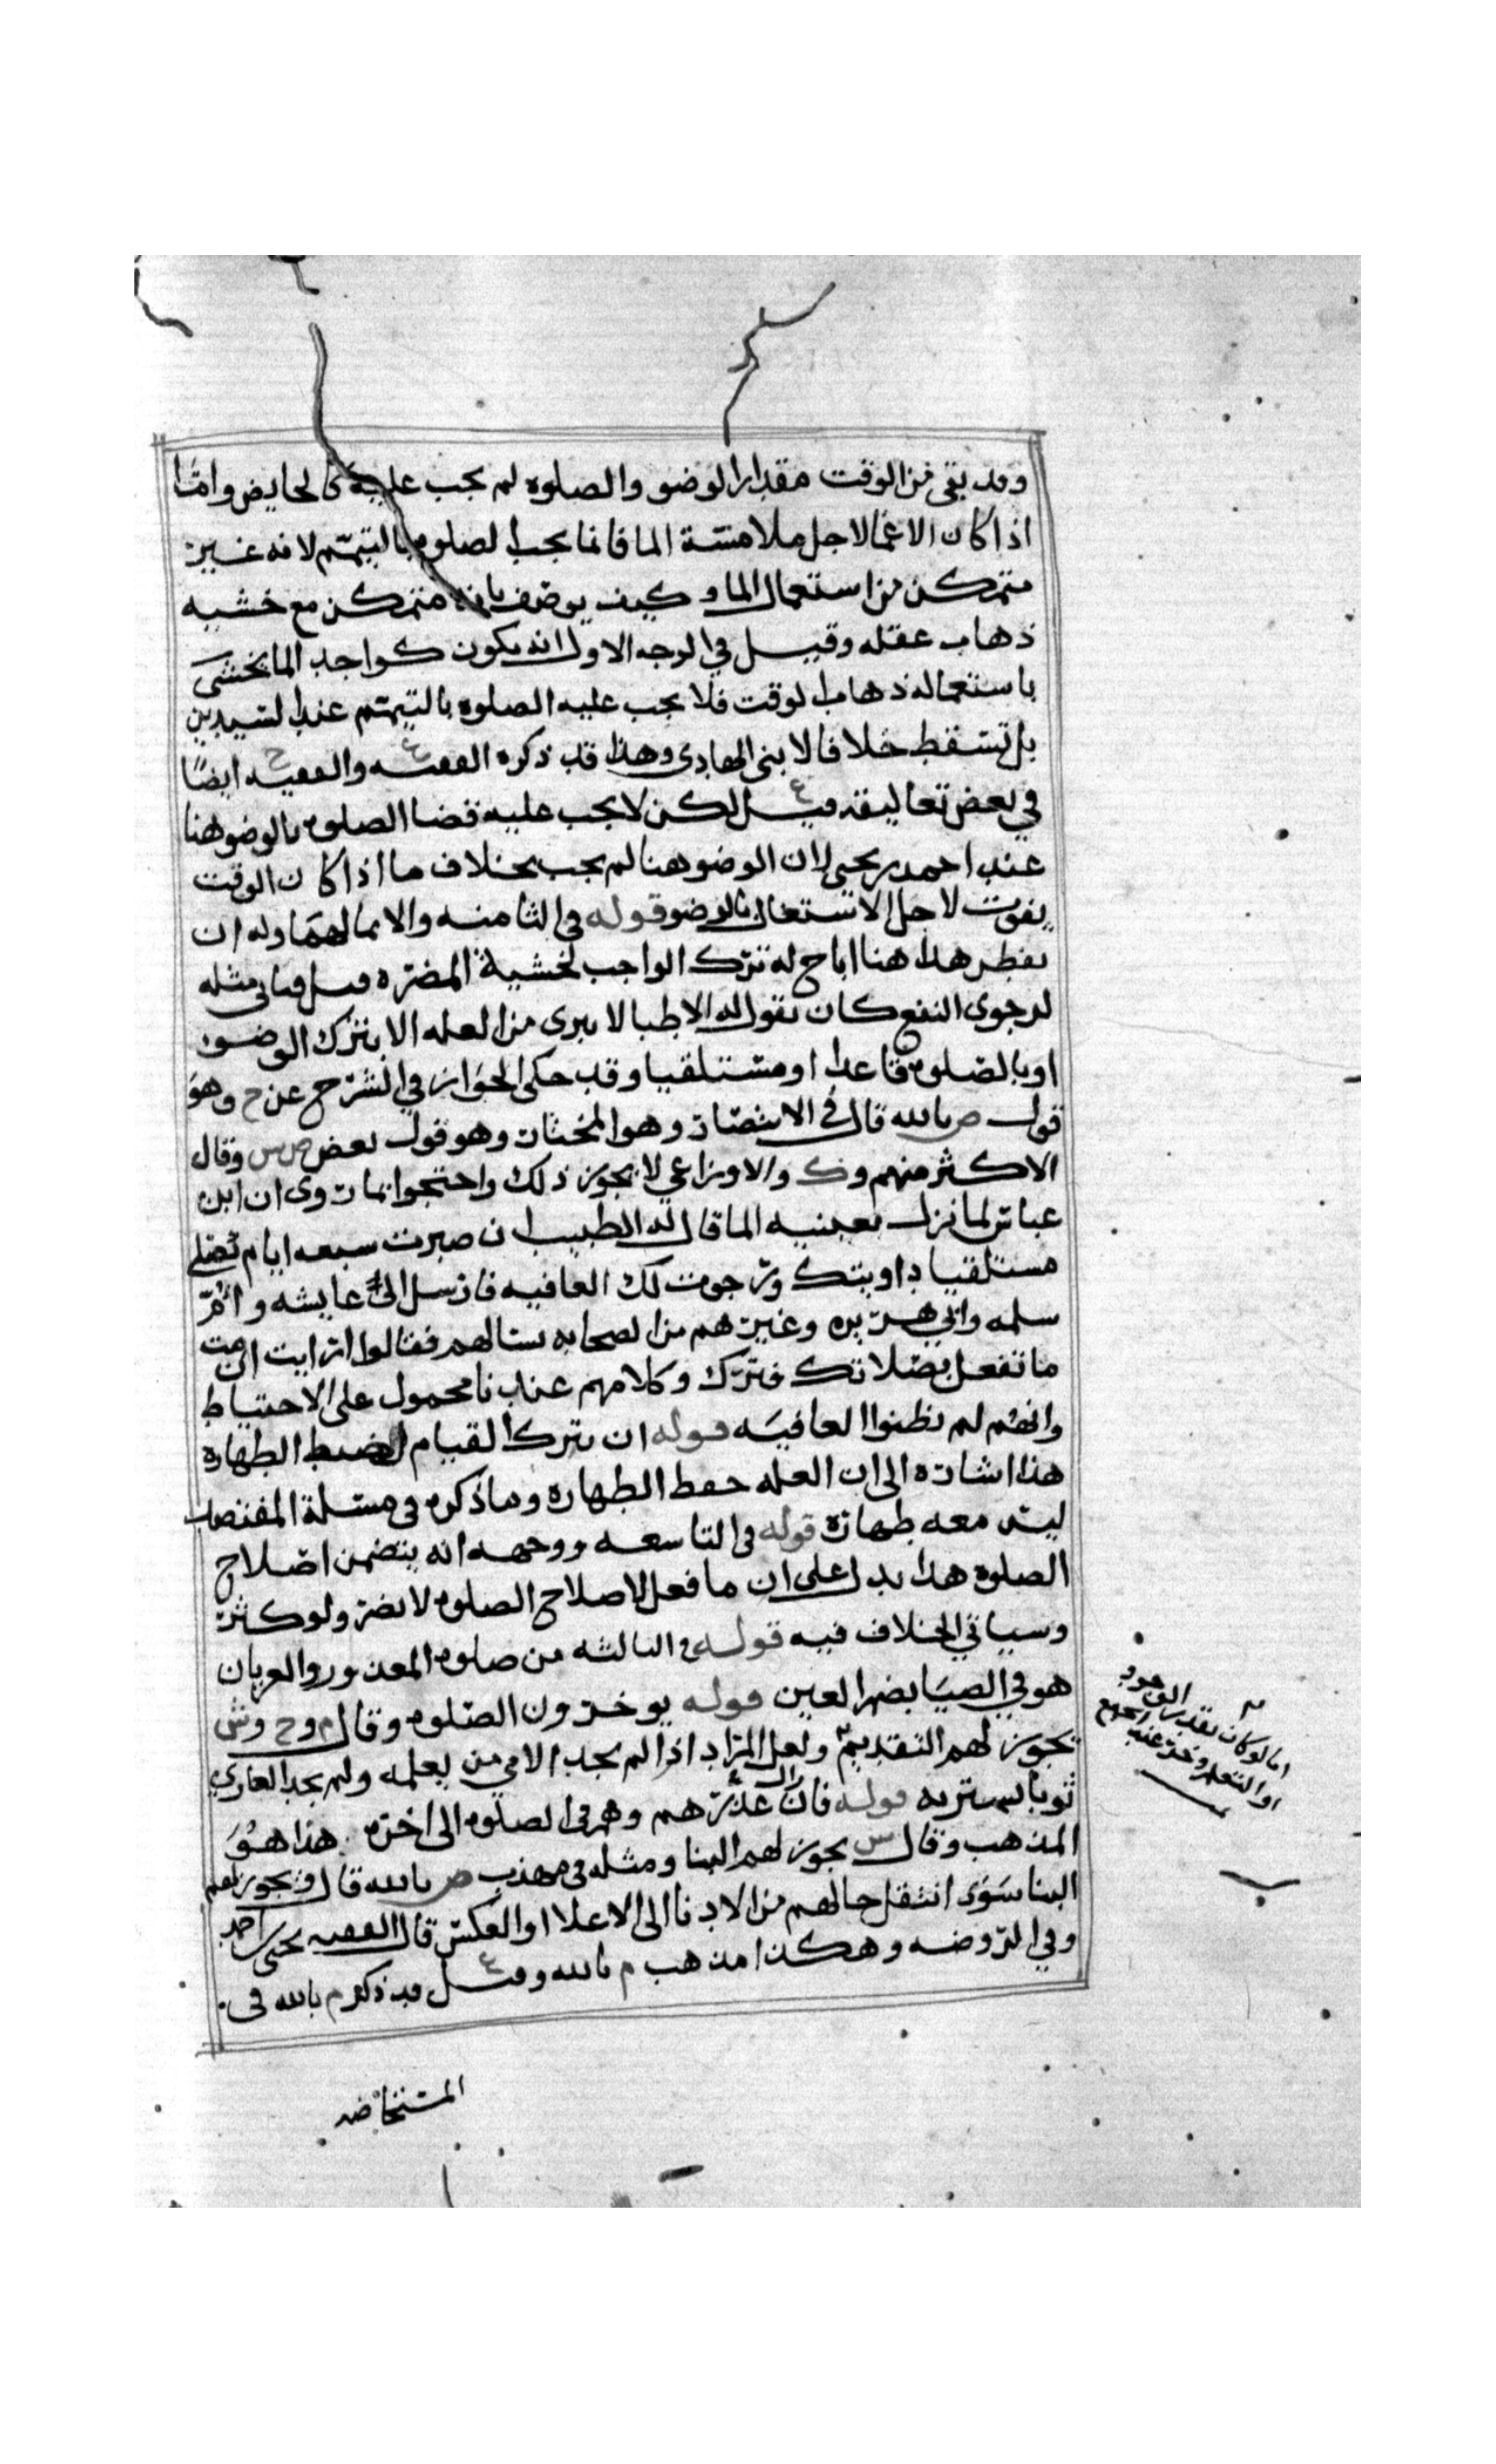 وقد بقي من الوقت مقدار الوضو والصلوه لم يجب عليه كالحايض واما
اذا كان الاغما لاجل ملامسة الما فانما يجب الصلوه بالتيمم لانه غير
متمكن من استعمال الما وكيف يوصف بانه متمكن مع خشيه
ذهاب عقله وقيل في الوجه الاول انه يكون كواجد الما يخشى
باستعماله ذهاب الوقت فلا يجب عليه الصلوه بالتيمم عند السيدين
بل تسقط خلافا لابني الهادي وهذا قد ذكره الفقيه ع والفقيه ح ايضا
في بعض تعاليقه قيل ع لكن لا يجب عليه قضا الصلوه بالوضو هنا
عند احمد بن يحيى لان الوضو هنا لم يجب بخلاف ما اذا كان الوقت
يفوت لاجل الاشتغال بالوضو قوله في الثامنه والايما لهما وله ان
يفطر هذا هنا اباح له ترك الواجب لخشية المضره قيل فياتي مثله
لرجوى النفع كان تقول له الاطبا لا يبرى من العله الا بترك الوضو
او بالصلوه قاعدا او مستلقيا وقد حكى الجواز في الشرح عن ح وهو
قول ص بالله قال في الانتصار وهو المختار وهو قول بعض ص ش وقال
الاكثر منهم وك والاوزاعي لا يجوز ذلك واحتجوا بما روى ان ابن
عباس لما نزل بعينيه الما قال له الطبيب ان صبرت سبعه ايام تصلي
مستلقيا داويتك ورجوت لك العافيه فارسل الى عايشه وام
سلمه وابي هريره وغيرهم من الصحابه يسالهم فقالوا ارايت ان مت
ما تفعل بصلاتك فترك وكلامهم عندنا محمول على الاحتياط
وانهم لم يظنوا العافيه قوله ان يترك القيام لضبط الطهاره
هذا اشاره الى ان العله حفظ الطهاره وما ذكره في مسئلة المفتصد
ليس معه طهاره قوله في التاسعه ووجهه انه يتضمن اصلاح
الصلوه هذا يدل على ان ما فعل لاصلاح الصلوه لا يضر ولو كثر
وسياتي الخلاف فيه قوله في الثالثه من صلوه المعذور والعريان
هو في الضيا بضم العين قوله يوخرون الصلوه وقال م وح وش
يجوز لهم التقديم ولعل المراد اذا لم يجد الامي من يعلمه ولم يجد العاري
ثوبا يستتر به قوله فان زال عذرهم وهم في الصلوه الى اخره هذا هو
المذهب وقال ش يجوز لهم البنا ومثله في مهذب ص بالله قال ويجوز لهم
البنا سوى انتقل حالهم من الادنا الى الاعلا او العكس قال الفقيه يحيى بن احمد
وفي الروضه وهكذا مذهب م بالله وقيل ع قد ذكر م بالله في
المستحاضه
اما لو كان بقدر الوجود
او التعلم وجد عند الجميع